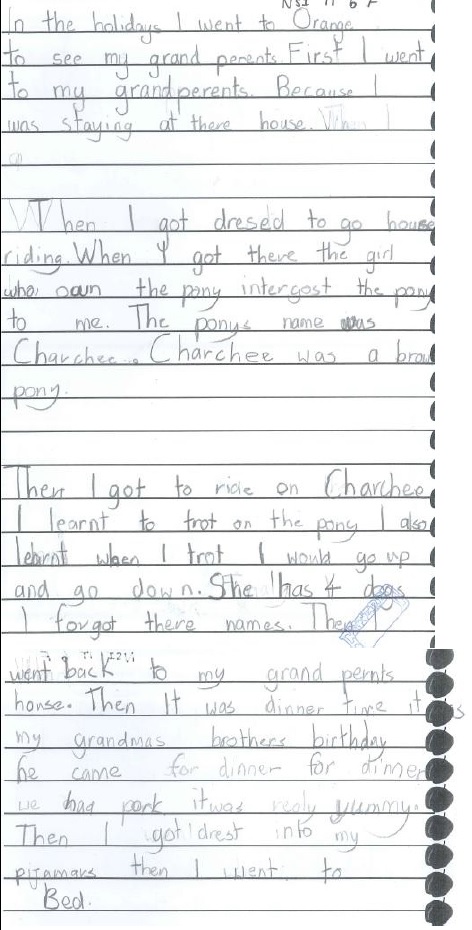 In the holidays I went to Orange
to see my grand perents. First I went
to my grandperents. Because I
was staying at there house. When I
Then I got dresed to go house
riding. When I got there the girl
who own the pony intergost the pony
to me. The ponys name was
Charchee. Charchee was a brow
pony.
Then I got to ride on Charchee
I learnt to trot on the pony I also
learnt when I trot I would go up
and go down. She has 4 dogs
I forgot there names. Then
went back to my grand pernts
house. Then It was dinner time it is
my grandmas brothers birthday
he came for dinner for dinner
we had pork itwas realy yummy.
Then I got drest into my
pijamars then I went to
Bed.